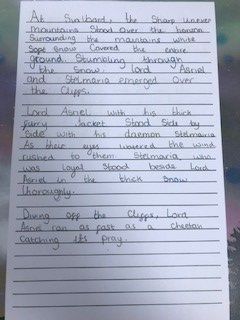 At Svalbard, the Sharp uneven
mountains Stood over the horizon
Surrounding the mountains white
Sope Snow Covered the entire
ground. Stumbling through
the Snow. Lord Asriel
and Stelmaria emerged over
the Cliffs.
Lord Asriel with his thick
furry Jacket Stood Side by
Side with his daemon Stelmaria
As their eyes watered the wind
rushed to them. Stelmaria, who
was loyal Stood beside Lord
Asriel in the thick Snow
thoroughly.
Diving off the Cliffs, Lord
Asriel ran as fast as a cheetah
Catching its pray.